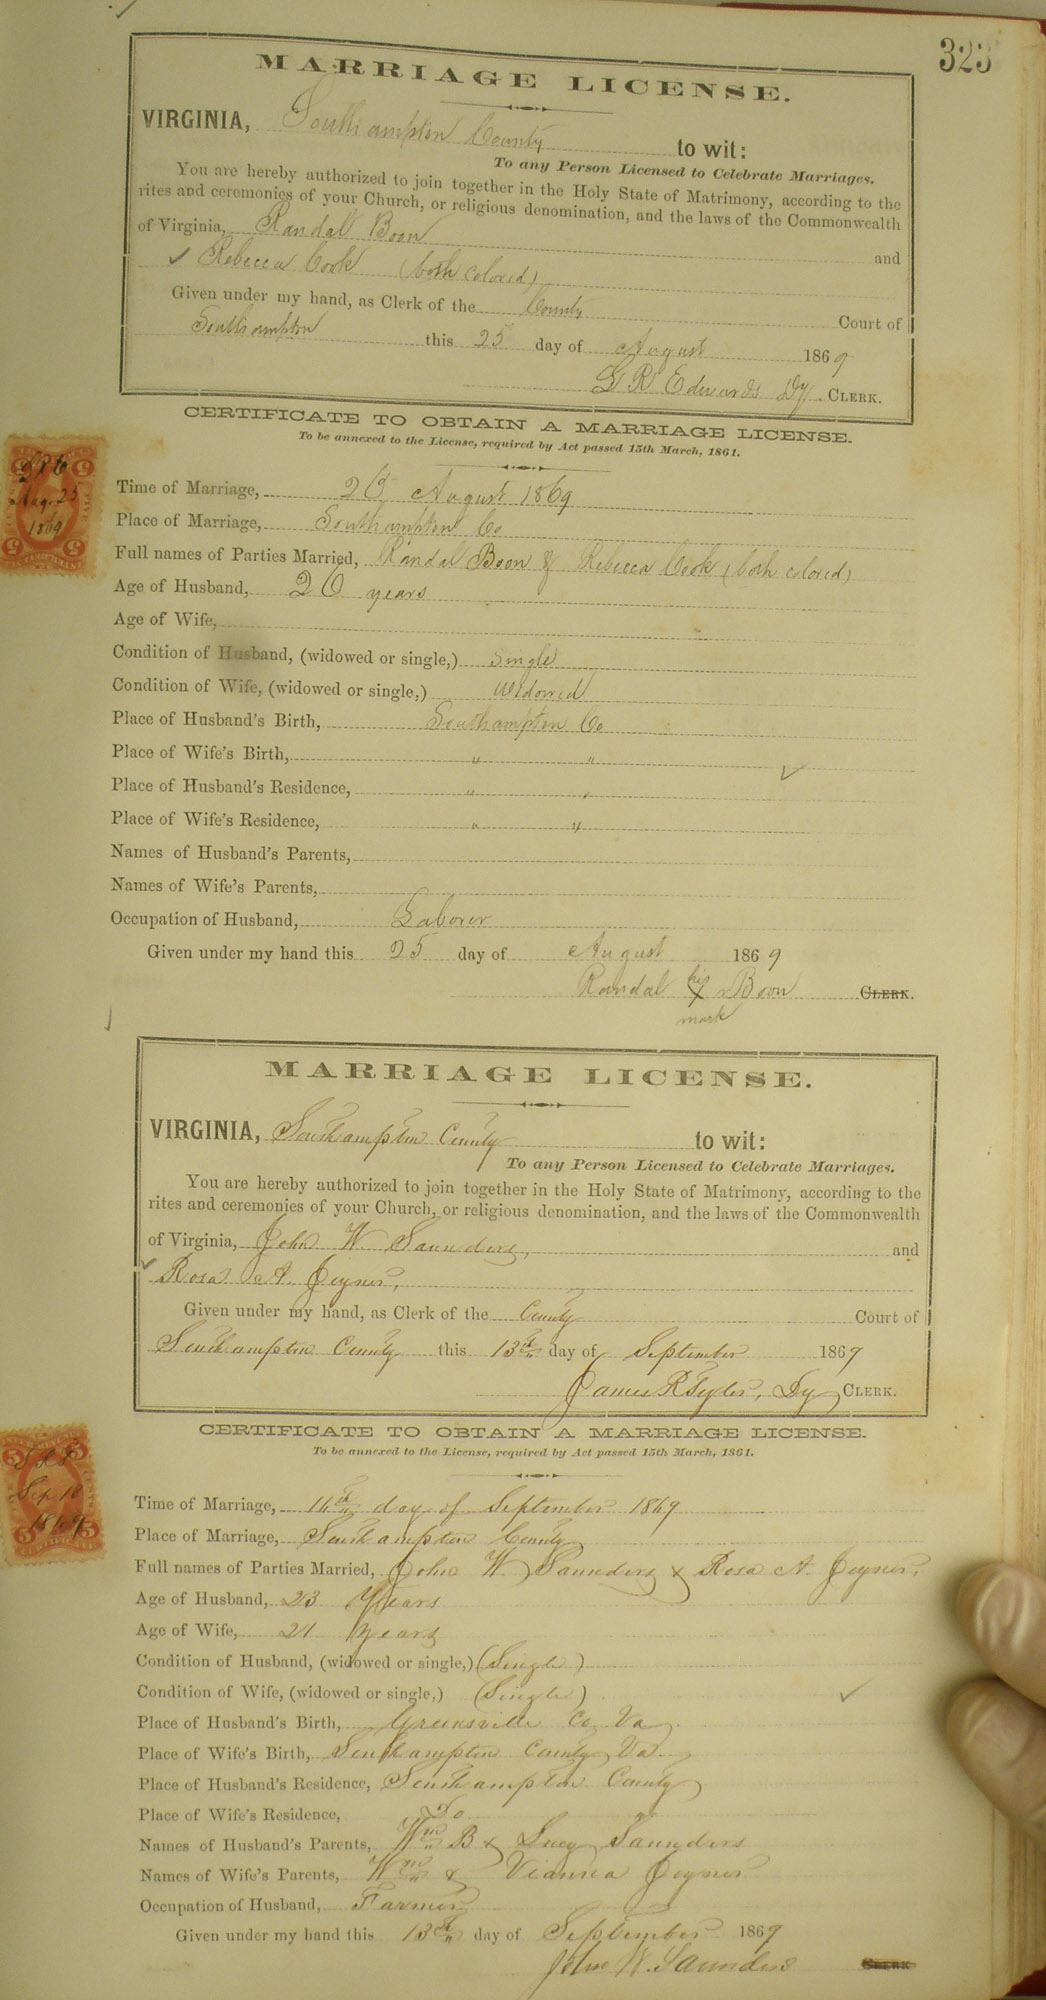 323
MARRIAGE LICENSE.
VIRGINIA, Southampton County to wit:
To any Person Licensed to Celebrate Marriages.
You are hereby authorized to join together in the Holy State of Matrimony, according to the
rites and ceremonies of your Church, or religious denomination, and the laws of the Commonwealth
of Virginia, Randal Boon and
Rebecca Cook (both colored)
Given under my hand, as Clerk of the County Court of
Southampton this 25 day of August 1869
G R Edwards Dy. CLERK.
CERTIFICATE TO OBTAIN A MARRIAGE LICENSE.
To be annexed to the License, required by Act passed 15th March, 1861.
Aug. 25
1869
Time of Marriage, 26 August 1869
Place of Marriage, Southampton Co
Full names of Parties Married, Randal Boon & Rebecca Cook (both colored)
Age of Husband, 26 years
Age of Wife,
Condition of Husband, (widowed or single,) Single
Condition of Wife, (widowed or single,) Widowed
Place of Husband's Birth, Southampton Co
Place of Wife's Birth, " "
Place of Husband's Residence, " "
Place of Wife's Residence, " "
Names of Husband's Parents,
Names of Wife's Parents,
Occupation of Husband, Laborer
Given under my hand this 25 day of August 1869
Randal his X Boon CLERK.
mark
MARRIAGE LICENSE.
VIRGINIA, Southampton County to wit:
To any Person Licensed to Celebrate Marriages.
You are hereby authorized to join together in the Holy State of Matrimony, according to the
rites and ceremonies of your Church, or religious denomination, and the laws of the Commonwealth
of Virginia, John W Saunders, and
Rosa A. Joyner,
Given under my hand, as Clerk of the County Court of
Southampton County this 13th day of September 1869
James R Tyler, Dy CLERK.
CERTIFICATE TO OBTAIN A MARRIAGE LICENSE.
To be annexed to the License, required by Act passed 15th March, 1861.
Sep 18
1869
Time of Marriage, 16th day of September 1869
Place of Marriage, Southampton County
Full names of Parties Married, John W. Saunders & Rosa A. Joyner,
Age of Husband, 23 Years
Age of Wife, 21 Years
Condition of Husband, (widowed or single,) (Single)
Condition of Wife, (widowed or single,) (Single)
Place of Husband's Birth, Greensville Co Va
Place of Wife's Birth, Southampton County Va
Place of Husband's Residence, Southampton County
Place of Wife's Residence, Do Do
Names of Husband's Parents, Wm B & Lucy Saunders
Names of Wife's Parents, Wm & Vianna Joyner
Occupation of Husband, Farmer
Given under my hand this 13th day of September 1869
John W. Saunders CLERK